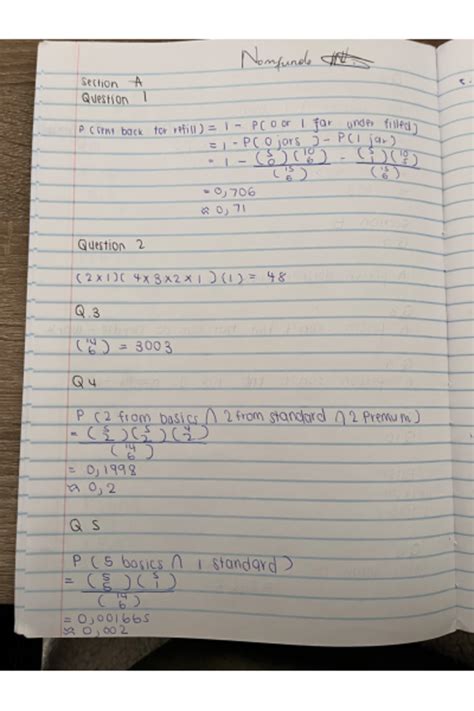 Nomfundo
Section A
Question 1
P (sent back for refill) = 1 - P(0 or 1 jar under filled)
= 1 - P(0 jars) - P(1 jar)
= 1 - (5 0)(10 6) / (15 6) - (5 1)(10 5) / (15 6)
= 0,706
≈ 0,71
Question 2
(2x1)(4x3x2x1)(1) = 48
Q.3
(14 6) = 3003
Q4
P (2 from basics ∩ 2 from standard ∩ 2 Premium)
= (5 2)(5 2)(4 2) / (14 6)
= 0,1998
≈ 0,2
Q5
P (5 basics ∩ 1 standard)
= (5 5)(5 1) / (14 6)
= 0,001665
≈ 0,002